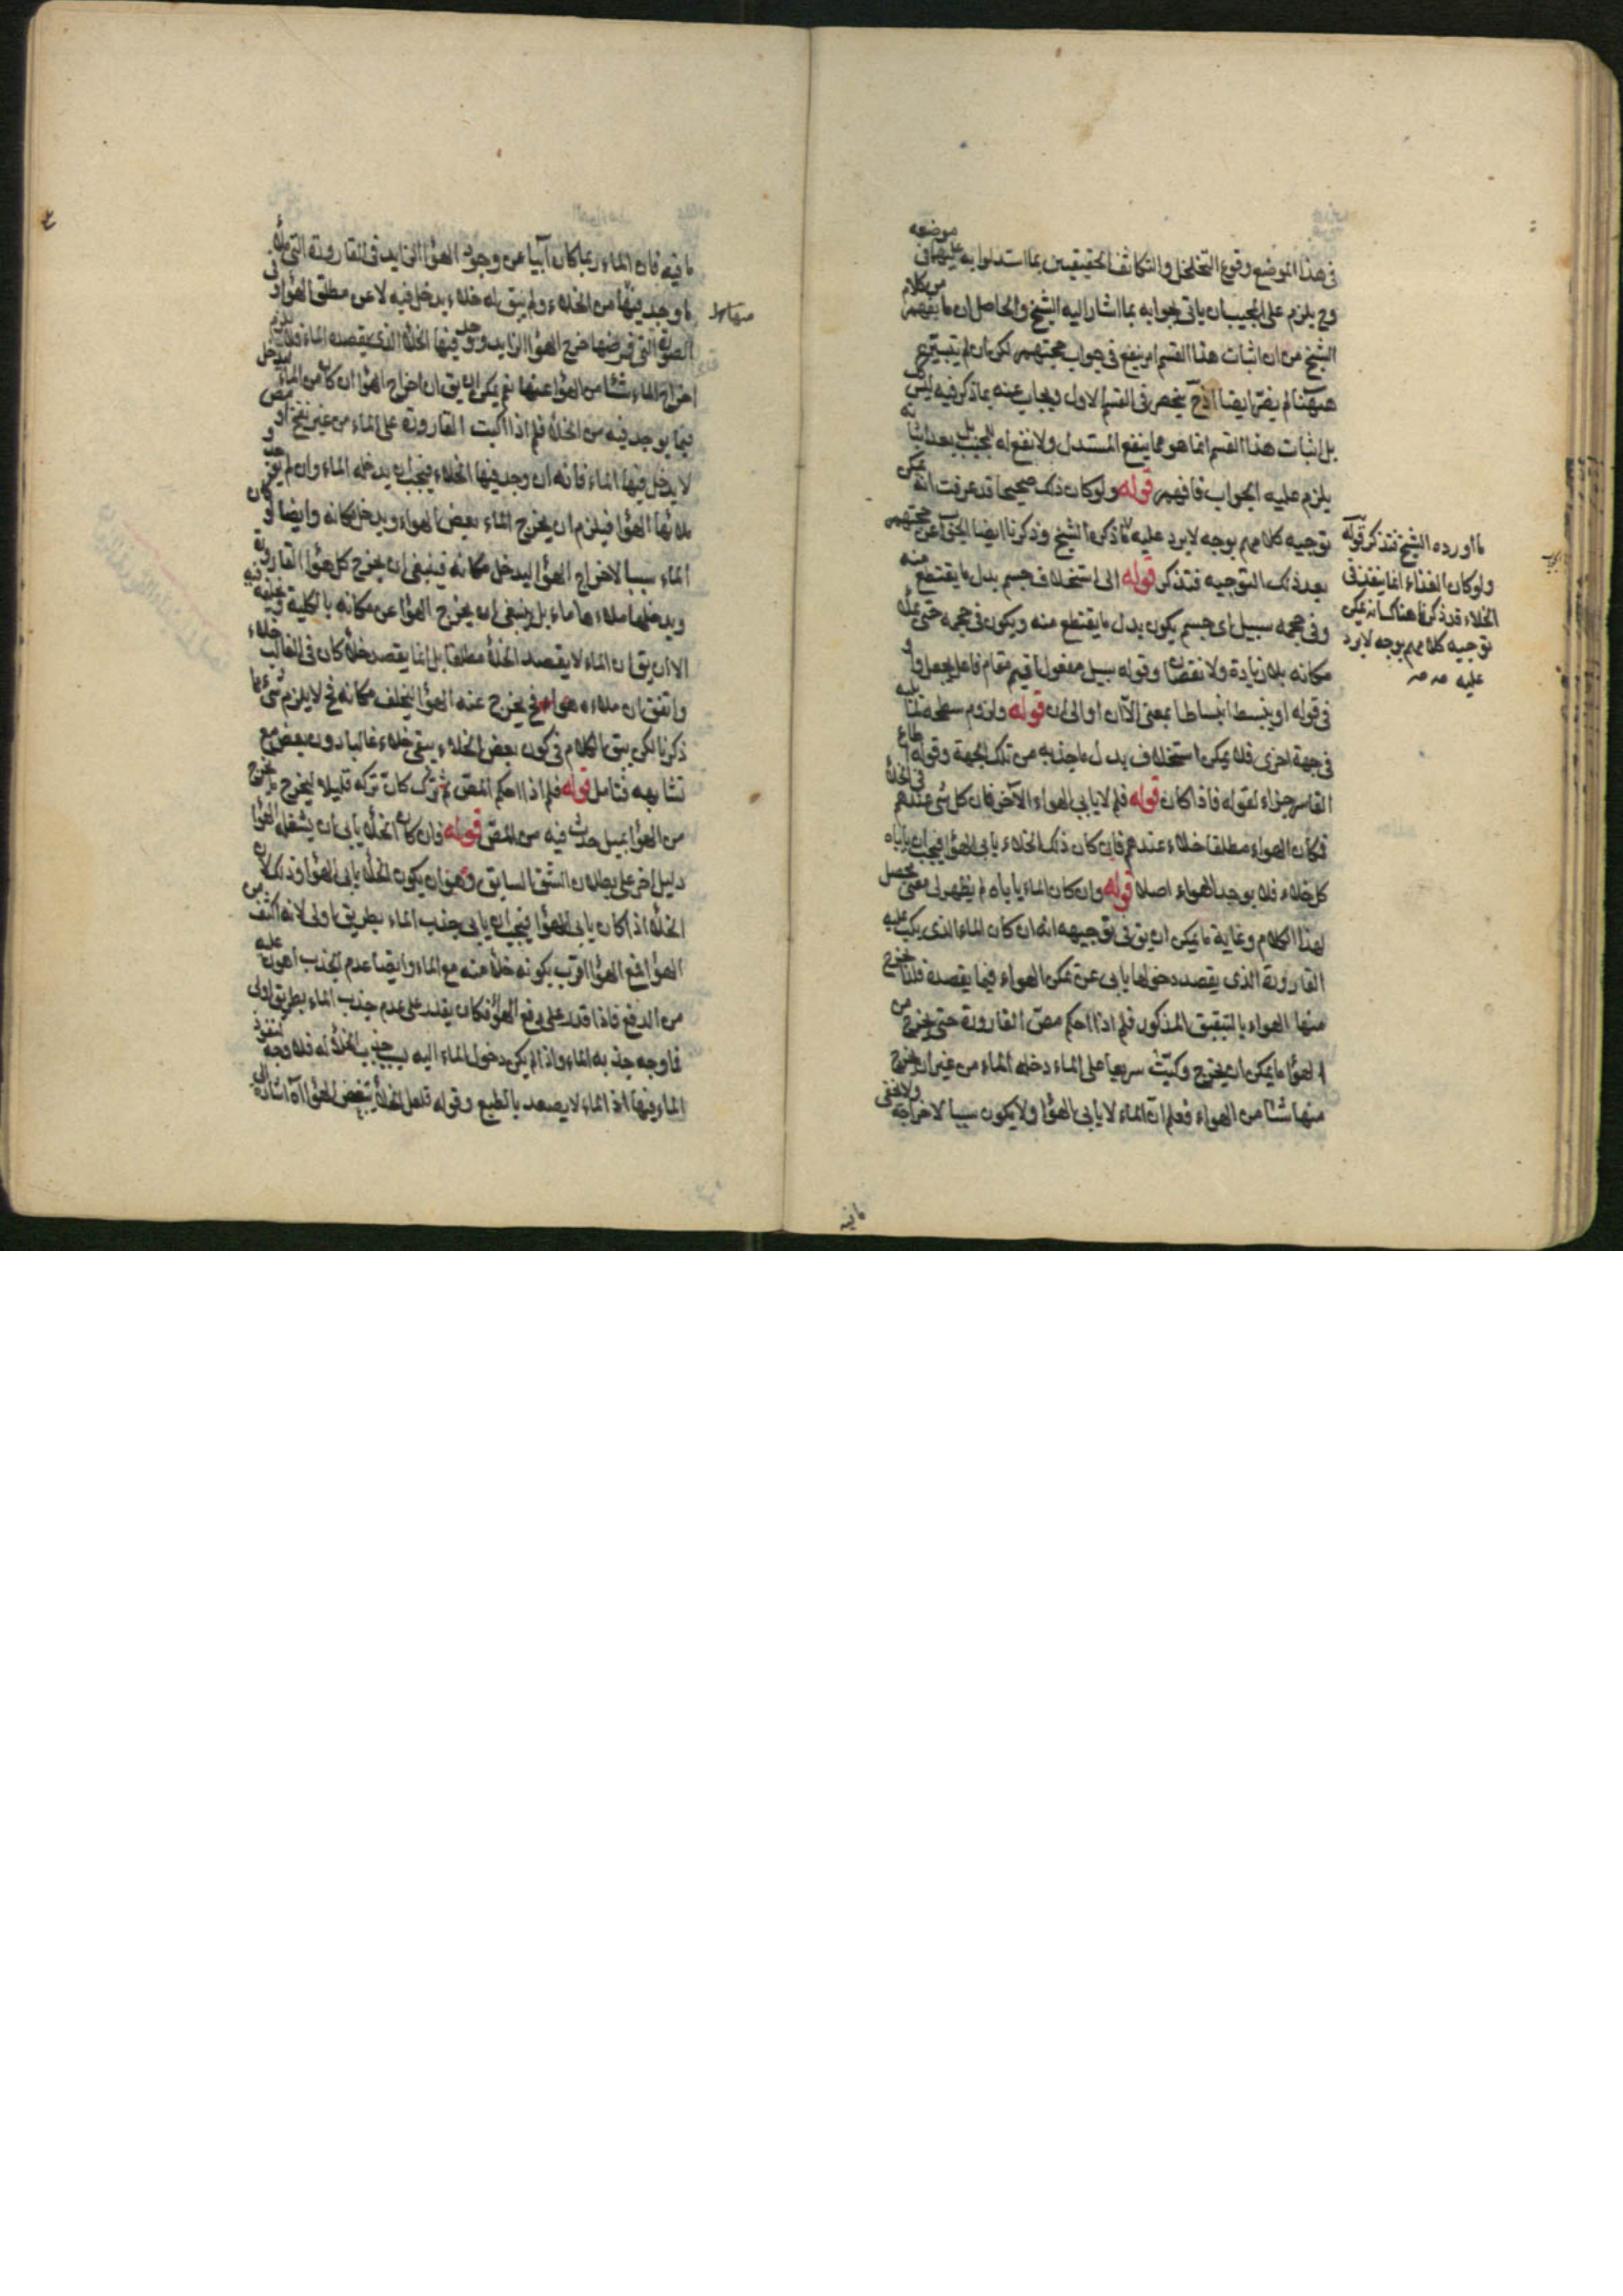 في هذا الموضع وقوع التخلخل والتكاثف الحقيقيين بما استدلوا به عليها في موضعه
وح يلزم على المجيب ان ياتى بجوابه بما اشار اليه الشيخ والحاصل ان ما يفهم من كلام
الشيخ من ان اثبات هذا القسم لم ينفع في جواب حجتهم لكن ان لم يتبين
ههنا لم يضر ايضا اذ ح ينحصر في القسم الاول ويجاب عنه بما ذكر فيه ليس
بل اثبات هذا القسم انما هو مما ينفع المستدل ولا نفع له للمجيب بل بعد اثباته
يلزم عليه الجواب فافهم قوله ولو كان ذلك صحيحا قد عرفت انه يمكن
توجيه كلامهم بوجه لا يرد عليه ما ذكره الشيخ وذكرنا ايضا الجواب عن حجتهم
بعد ذلك التوجيه فتذكر قوله الى استخلاف جسم بدل ما يقتطع منه
وفى حجمه سبيل اى جسم يكون بدل ما يقتطع منه ويكون في حجمه حتى يملأ
مكانه بلا زيادة ولا نقصان وقوله سبيل مفعول اقيم مقام فاعل يجعل و
في قوله او ينبسط انبساطا بمعنى الا ان او الى ان قوله ولزوم سطحه لما يليه
في جهة اخرى فلا يمكن استخلاف بدل ما جذبه من تلك الجهة وقوله اطاع
القاسر جزاء لقوله فاذا كان قوله فلم لا يابى الهواء الآخر فان كل شئ عندهم في الخلأ
فكان الهواء مطلقا خلاء عندهم فان كان ذلك الخلاء يابى الهواء فيجب ان يأباه
كل خلاء فلا يوجد الهواء اصلا قوله وان كان الماء يأباه لم يظهر لى معنى محصل
لهذا الكلام وغاية ما يمكن ان يق في توجيهه انه ان كان الماء الذي يكب عليه
القارورة الذي يقصد دخولها يابى عن تمكن الهواء فيما يقصده فلذا خرج
منها الهواء بالتبقبق المذكور فلم اذا احكم مص القارورة حتى يخرج من
الهواء ما يمكن ان يخرج وكبت سريعا على الماء دخله الماء من غير ان يخرج
منها شئا من الهواء فعلم ان الماء لا يابى الهواء ولا يكون سببا لاخراجه ولا يخفى
ما اورده الشيخ فتذكر قوله
ولو كان الغذاء انما ينفذ في
الخلاء قد ذكرنا هناك انه يمكن
توجيه كلامهم بوجه لا يرد
عليه
ما فيه
ما فيه فان الماء ربما كان آبيا عن وجود الهواء الزايد في القارورة التى ملأ
ما وجد فيها من الخلاء ولم يبق له خلاء يدخل فيه لا عن مطلق الهواء وفى
الصورة التى فرضها خرج الهواء الزايد ووجد فيها الخلأ الذي يقصده الماء فلا يلزم
اخراج الماء شئا من الهواء عنها نعم يمكن ان يق ان اخراج الهواء ان كان من الماء ليدخل
فيما يوجد فيه من الخلأ فلم اذا اكبت القارورة على الماء من غير نفخ او مص
لا يدخل فيها الماء فانه ان وجد فيها الخلاء فيجب ان يدخله الماء وان لم يوجد و
ملائها الهواء فيلزم ان يخرج الماء بعض الهواء ويدخل مكانه وايضا لو كان
الماء سببا لاخراج الهواء ليدخل مكانه فينبغى ان يخرج كل هواء القارورة
ويدخلها ملاءها ماء بل ينبغى ان يخرج الهواء عن مكانه بالكلية
الا ان يق ان الماء لا يقصد الخلأ مطلقا بل انما يقصد خلأ كان في الغالب خلاء
واتفق ان ملاءه هواء فح يخرج عنه الهواء ليخلف مكانه فح لا يلزم شئ مما
ذكرنا لكن يبقى الكلام في كون بعض الخلاء يبقى خلاء غالبا دون بعض مع
تشابهه فتامل قوله فلم اذا احكم المص ثم ترك كان تركه قليلا ليخرج ما يخرج
من الهواء بميل حدث فيه من المص قوله فان كان الخلأ يابى ان يشغله الهواء
دليل آخر على بطلان الشق السابق وهو ان يكون الخلأ يابى الهواء وذلك لان
الخلأ اذا كان يابى الهواء فيجب ان يابى جذب الماء بطريق اولى لانه اكثف من
الهواء اقرب بكونه خلأ منه مع الماء وايضا عدم الجذب اهون عليه
من الدفع فاذا قدر على دفع الهواء فكان يقدر على عدم جذب الماء بطريق اولى
فما وجه جذبه الماء واذا لم يكن دخول الماء اليه بسبب جذب الخلأ له فلا وجه لنفوذ
الماء فيها اذ الماء لا يصعد بالطبع وقوله فلعل الخلأ يبغض الهواء آه اشارة الى
منها